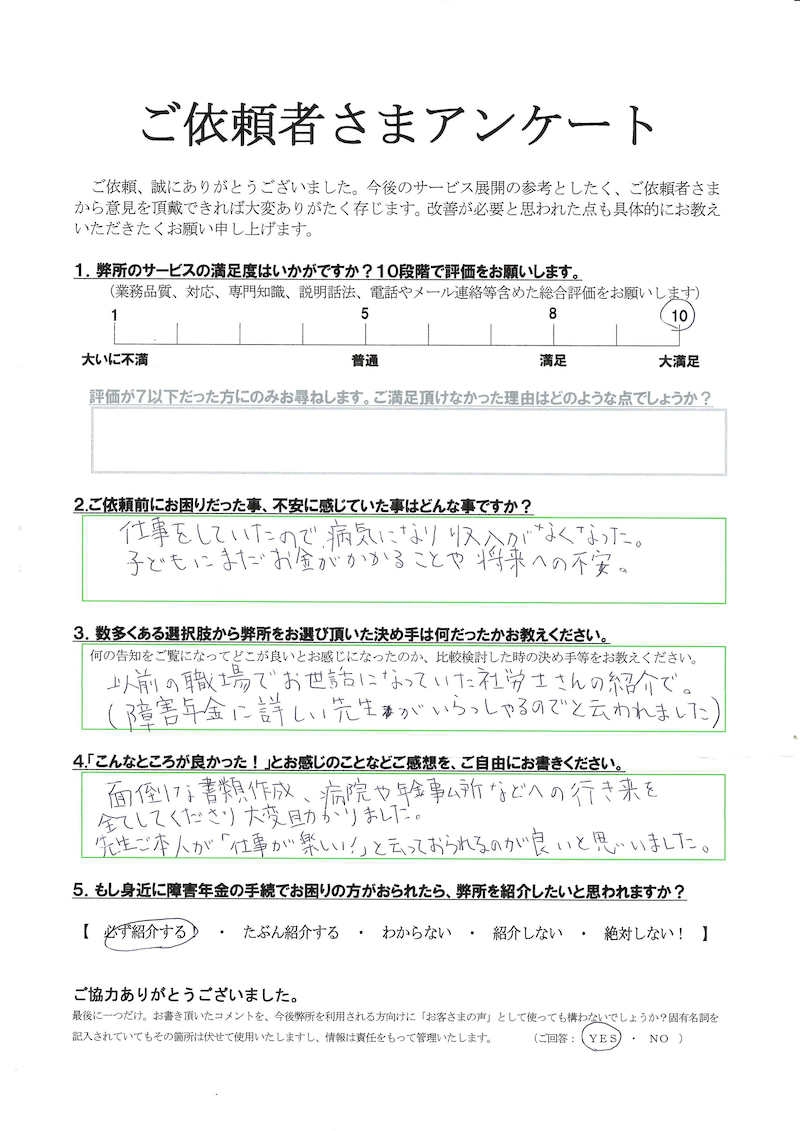 ご依頼者さまアンケート
ご依頼、誠にありがとうございました。今後のサービス展開の参考としたく、ご依頼者さま
から意見を頂戴できれば大変ありがたく存じます。改善が必要と思われた点も具体的にお教え
いただきたくお願い申し上げます。
1. 弊所のサービスの満足度はいかがですか？10段階で評価をお願いします。
（業務品質、対応、専門知識、説明話法、電話やメール連絡等含めた総合評価をお願いします）
1 5 8 10
大いに不満 普通 満足 大満足
評価が7以下だった方にのみお尋ねします。ご満足頂けなかった理由はどのような点でしょうか？
2.ご依頼前にお困りだった事、不安に感じていた事はどんな事ですか？
仕事をしていたので病気になり収入がなくなった。
子どもにまだお金がかかることや将来への不安。
3. 数多くある選択肢から弊所をお選び頂いた決め手は何だったかお教えください。
何の告知をご覧になってどこが良いとお感じになったのか、比較検討した時の決め手等をお教えください。
以前の職場でお世話になっていた社労士さんの紹介で。
(障害年金に詳しい先生がいらっしゃるのでと云われました)
4.「こんなところが良かった！」とお感じのことなどご感想を、ご自由にお書きください。
面倒な書類作成、病院や年金事ム所などへの行き来を
全てしてくださり大変助かりました。
先生ご本人が「仕事が楽しい！」と云っておられるのが良いと思いました。
5. もし身近に障害年金の手続でお困りの方がおられたら、弊所を紹介したいと思われますか？
【 必ず紹介する！ ・ たぶん紹介する ・ わからない ・ 紹介しない ・ 絶対しない！ 】
ご協力ありがとうございました。
最後に一つだけ。お書き頂いたコメントを、今後弊所を利用される方向けに「お客さまの声」として使っても構わないでしょうか？固有名詞を
記入されていてもその箇所は伏せて使用いたしますし、情報は責任をもって管理いたします。 （ご回答： YES ・ NO ）